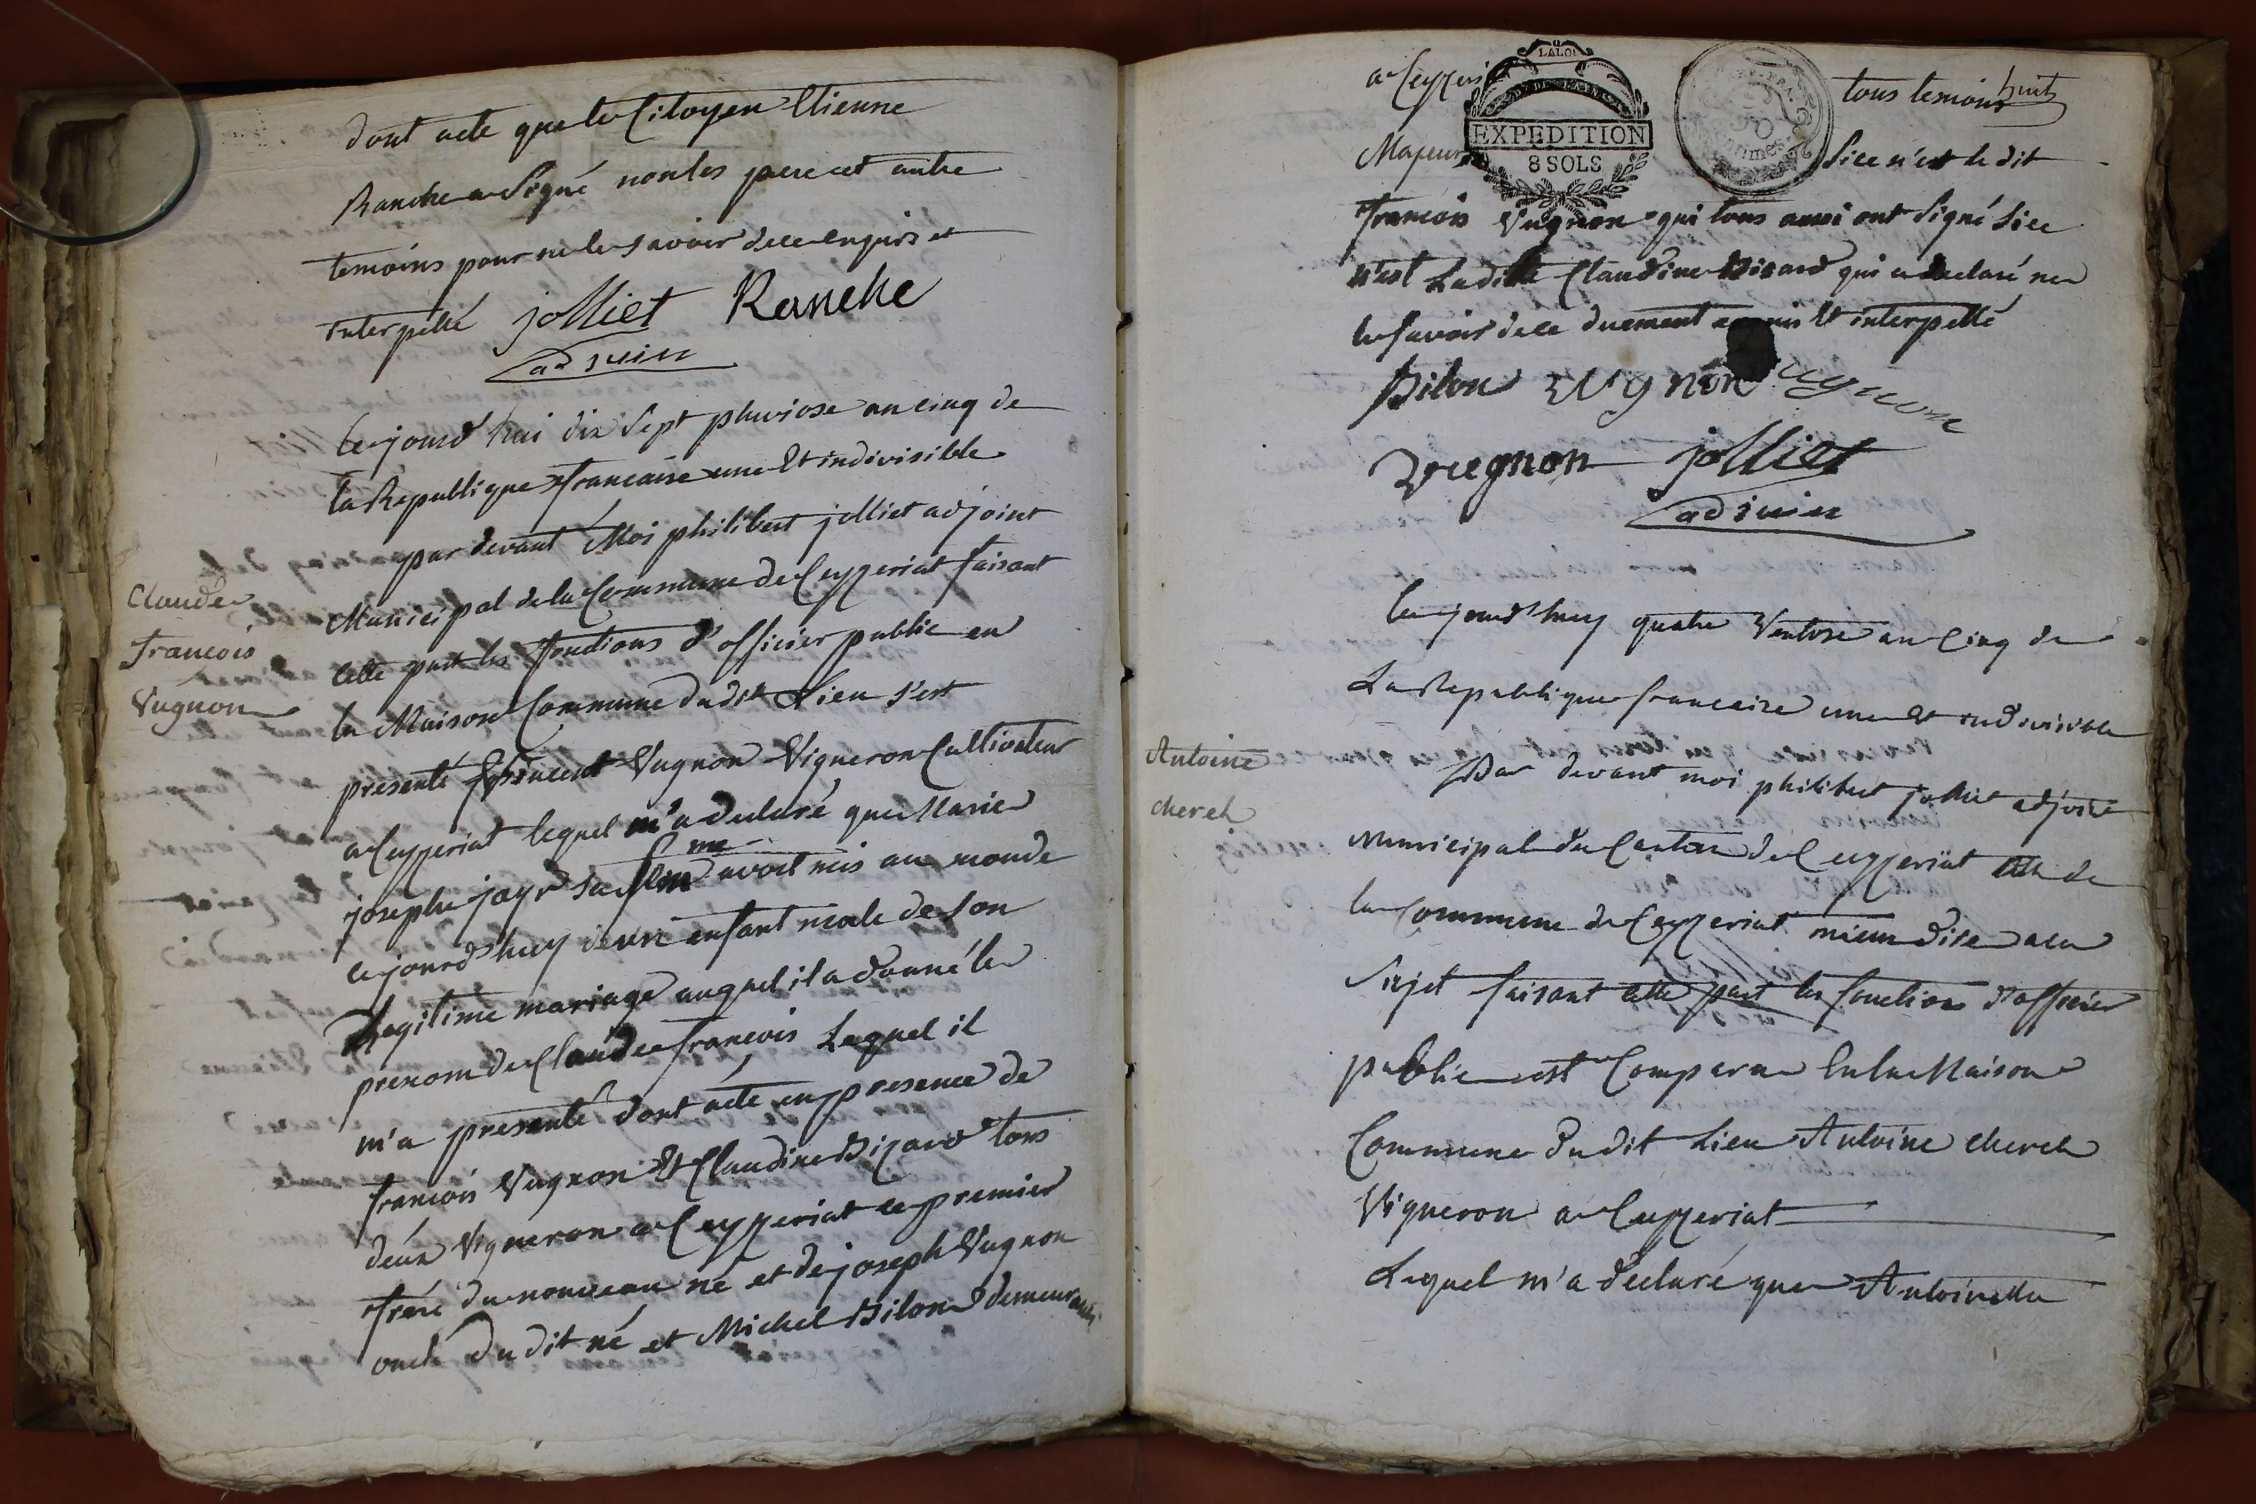 dont acte que le Citoyen Etienne
Ranche a Signé non les pere et autre
temoins pour ne le savoir de ce enquis et
interpellé jolliet Ranche
adjoint
Ce jourd hui dix Sept pluviose an cinq de
la Republique francaise une Et indivisible
par devant Moi philibert jolliet adjoint
Municipal de la Commune de Ceyzeriat faisant
cette part les fonctions d'officier public en
la Maison Commune dudit Lieu s'est
presenté Vincent Vugnon Vigneron Cultivateur
a Ceyzeriat lequel m'a declaré que Marie
josephe jayr sa fme avoit mis au monde
cejourd'huy un enfant male de son
Legitime mariage auquel il a donné le
prenom de Claude francois Lequel il
m'a presenté dont acte en presence de
francois Vugnon Et Claudine Bizard tous
deux Vigneron a Ceyzeriat le premier
frere du nouveau né et de joseph Vugnon
oncle du dit né et Michel Bilon demeurants
Claude
francois
Vugnon
a Ceyzeriat tous temoins huit
LA LOI
EXPEDITION
8 SOLS
Majeurs Si ce n'est le dit
francois Vugnon qui tous aussi ont Signé Si ce
n'est Ladite Claudine Bisard qui a declaré ne
le savoir de ce duement enquis Et interpellé
Bilon Vugnon Vugnon
Vuegnon jolliet
adjoint
Ce jourd'huy quatre Ventose an Cinq de
La Republique francaise une Et indivisible
Par devant moi philibert jolliet adjoint
Municipal du Canton de Ceyzeriat de
la Commune de Ceyzeriat a ce
Sujet faisant cette part les fonctions d'officier
public est Comparu En la Maison
Commune Dudit Lieu Antoine cherel
Vigneron a Ceyzeriat
Lequel m'a declaré que Antoinette
Antoine
cherel